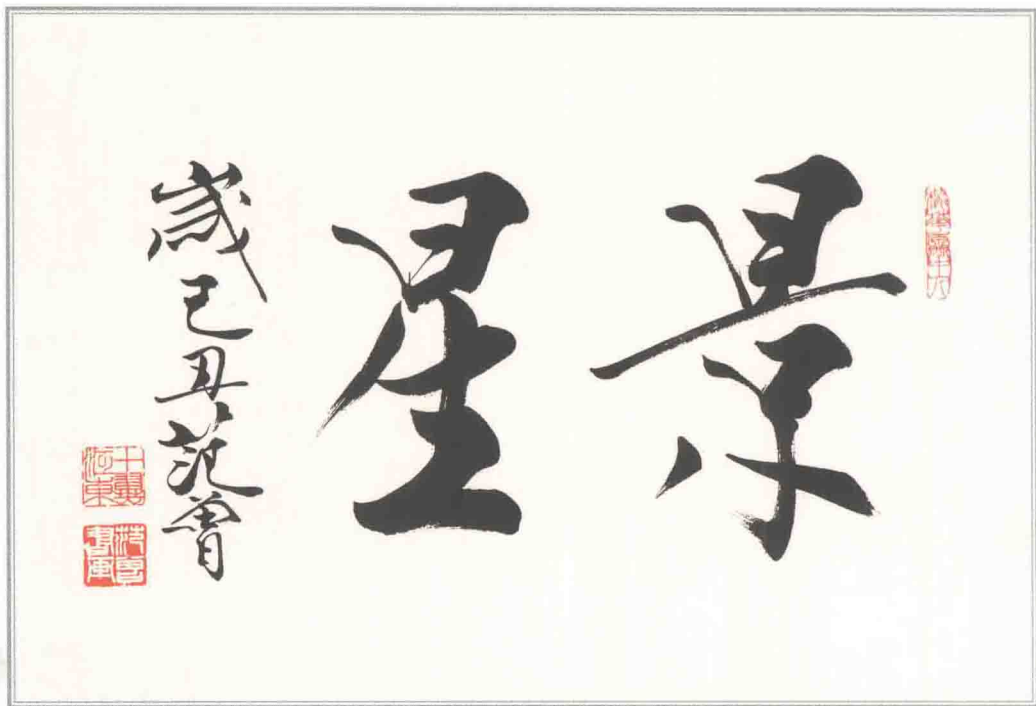 景星
歲己丑范曾